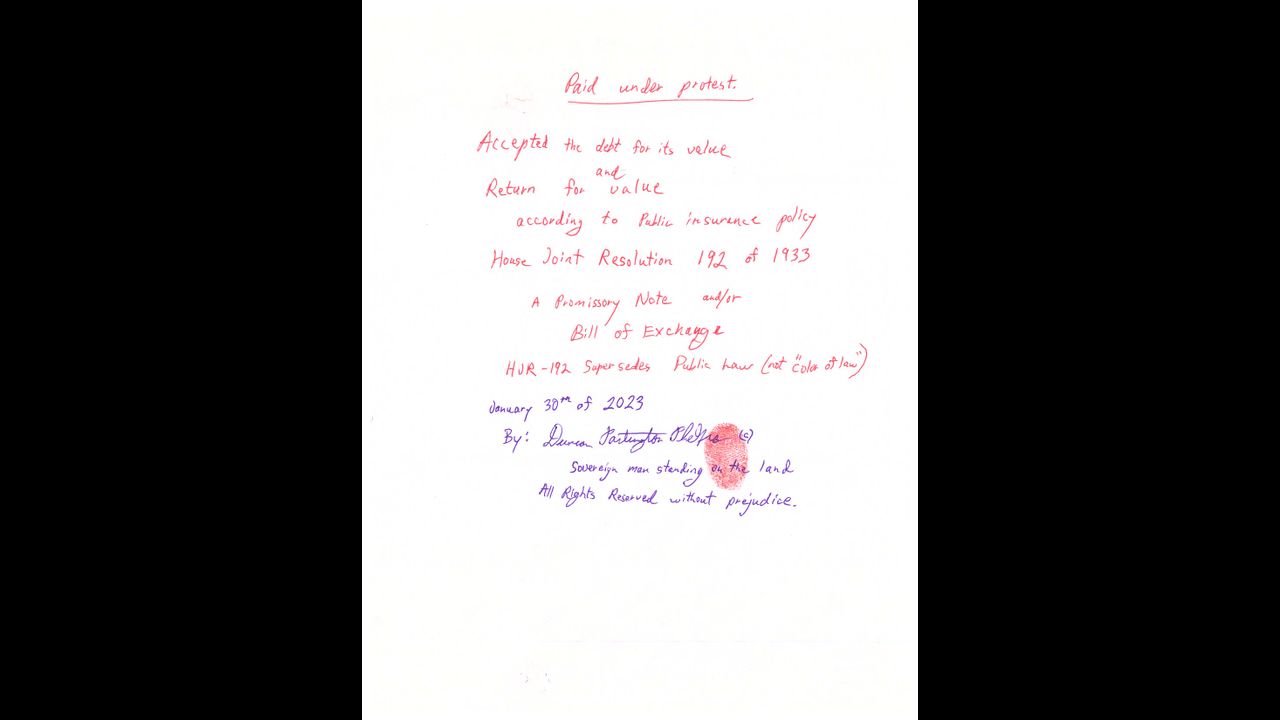 Paid under protest.
Accepted the debt for its value
and
Return for value
according to Public insurance policy
House Joint Resolution 192 of 1933
A Promissory Note and/or
Bill of Exchange
HJR-192 Supersedes Public Law (not "color of law")
January 30th of 2023
By: Duncan (c)
Sovereign man standing on the land
All Rights Reserved without prejudice.